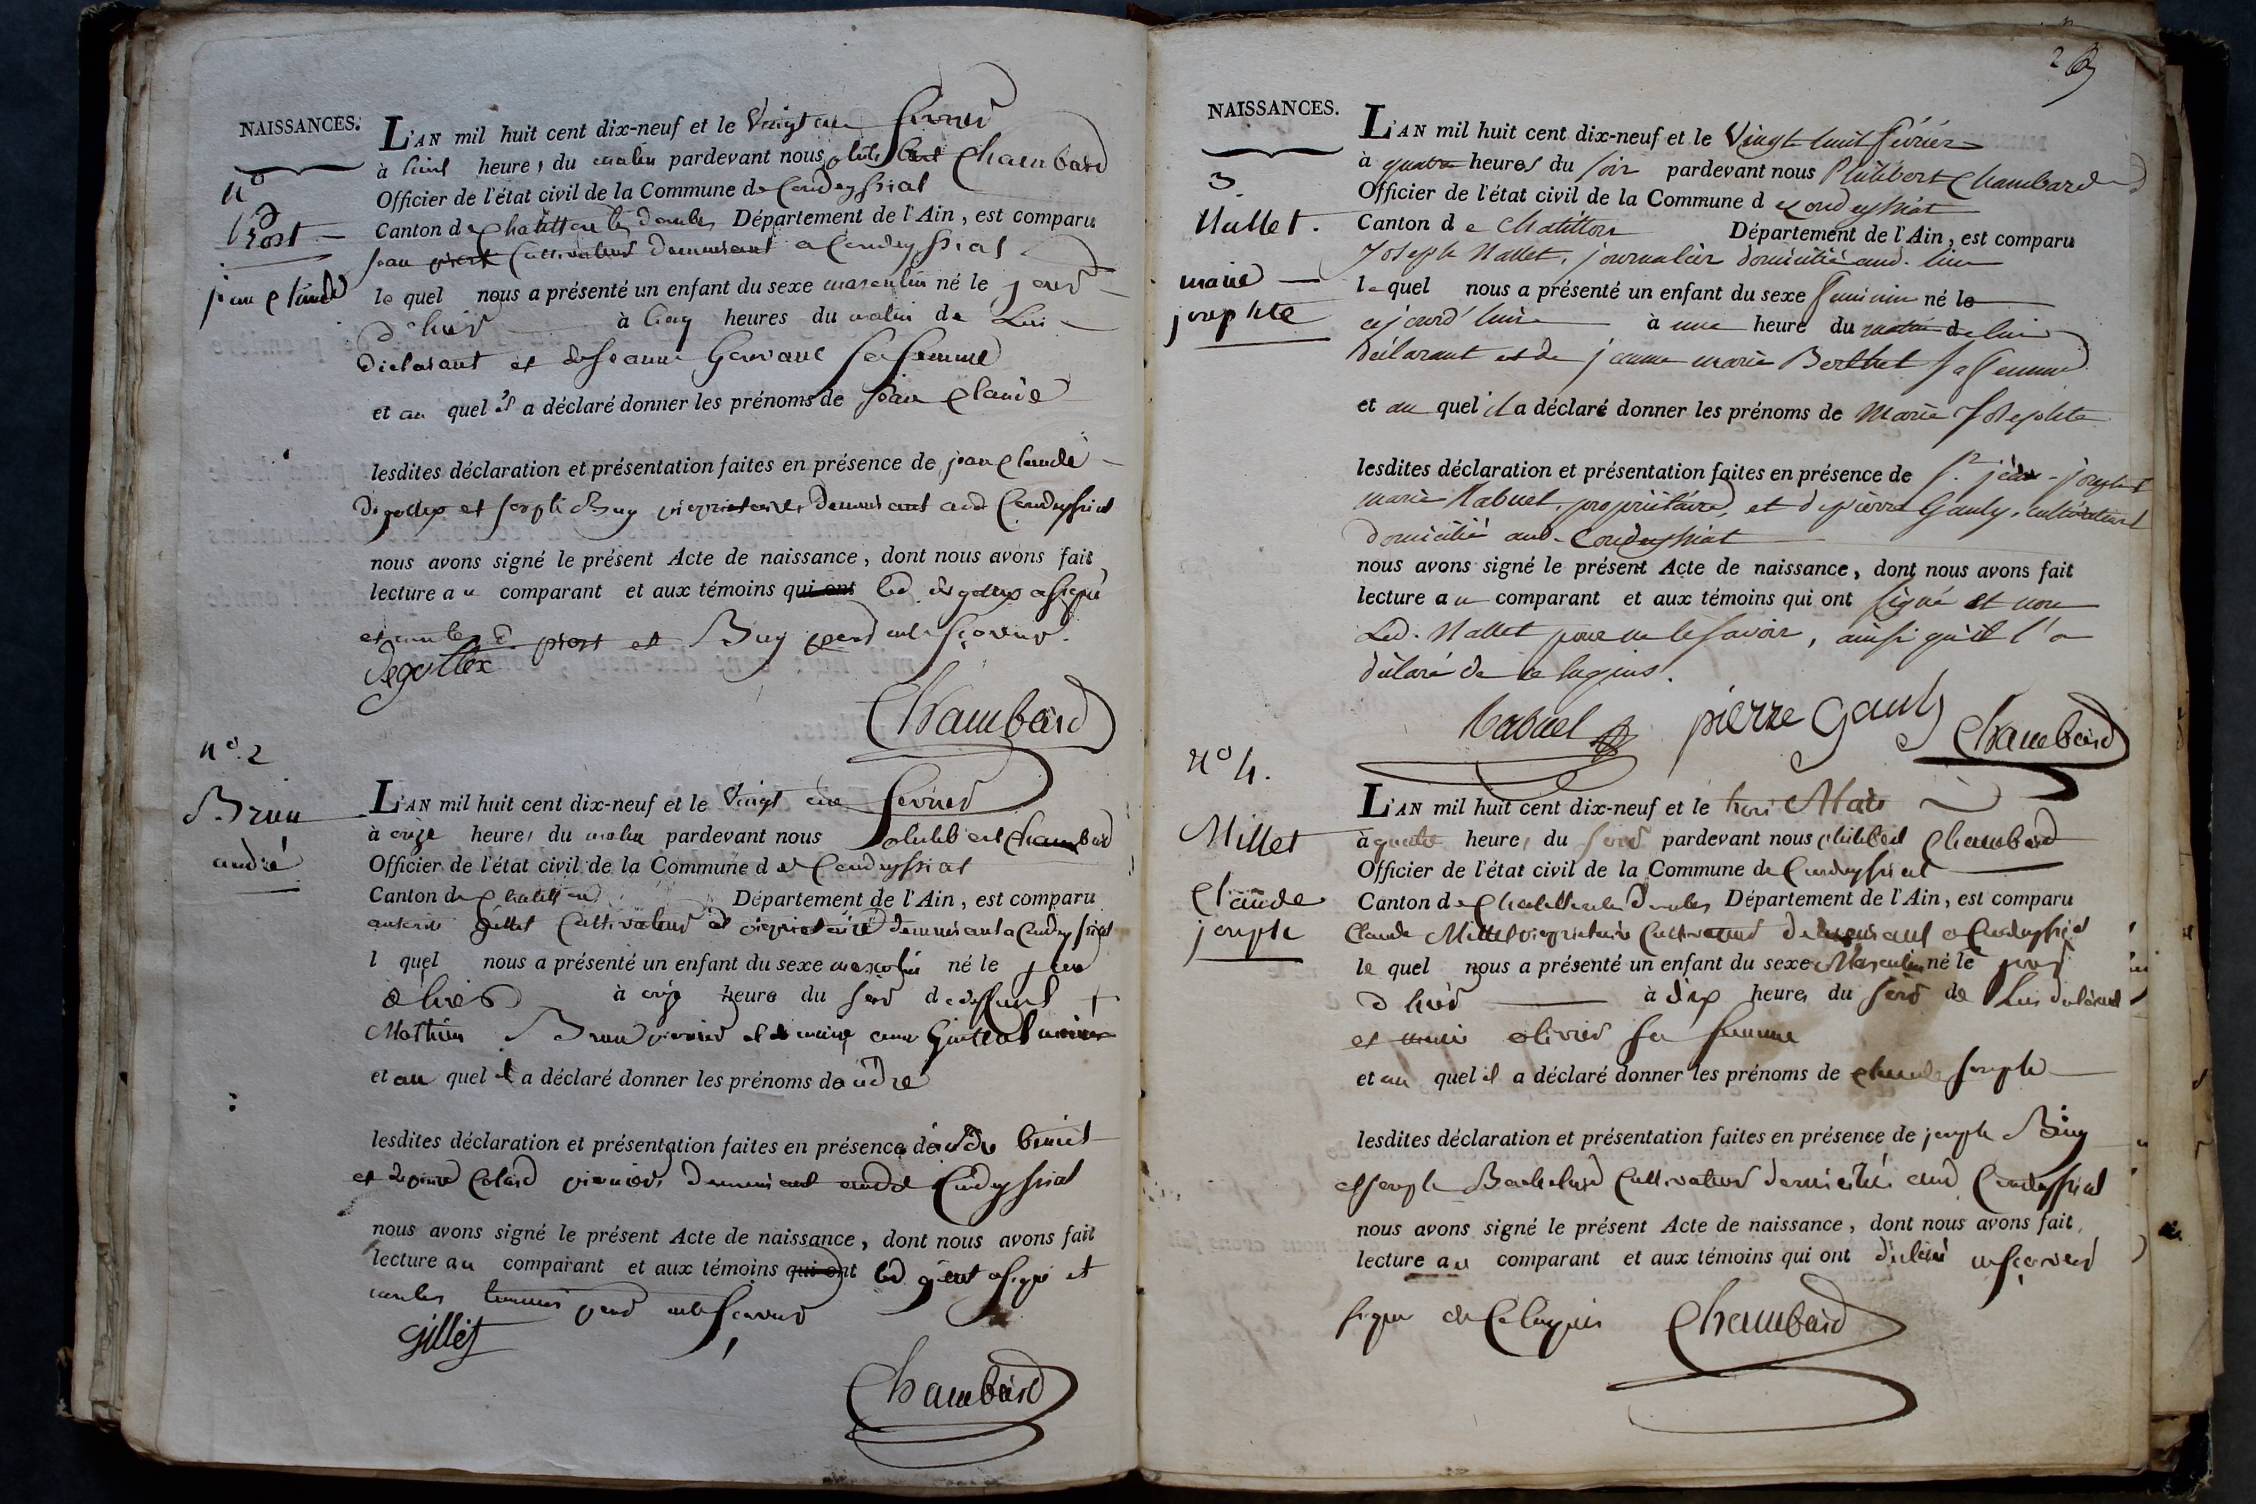 NAISSANCES.
nº
prost
jean claude
L'AN mil huit cent dix-neuf et le Vingt un février
à huit heures du matin pardevant nous philibert Chambard
Officier de l'état civil de la Commune de Condeyssiat
Canton de Chatillon les dombes Département de l'Ain, est comparu
jean prost Cultivateur demeurant a Condeyssiat
le quel nous a présenté un enfant du sexe masculin né le jour
d'hier à cinq heures du matin de Lui
déclarant et de jeanne sa femme
et au quel il a déclaré donner les prénoms de jean claude
lesdites déclaration et présentation faites en présence de jean claude
degottex et joseph Buy propriétaires demeurant aud Condeyssiat
nous avons signé le présent Acte de naissance, dont nous avons fait
lecture au comparant et aux témoins qui ont led. degottex a signé
et non les d. prost et Buy pour ne le sçavoir.
degottex
Chambard
nº. 2
Brun
andré
L'AN mil huit cent dix-neuf et le Vingt un février
à onze heures du matin pardevant nous philibert Chambard
Officier de l'état civil de la Commune de Condeyssiat
Canton de Chatillon Département de l'Ain, est comparu
gillet Cultivateur et propriétaire demeurant a Condeyssiat
l quel nous a présenté un enfant du sexe masculin né le jour
d'hier à onze heure du soir de deffunt
Mathieu Brun et de marie
et au quel il a déclaré donner les prénoms de andré
lesdites déclaration et présentation faites en présence de benoit
et de pierre Colard demeurant aud Condeyssiat
nous avons signé le présent Acte de naissance, dont nous avons fait
lecture au comparant et aux témoins qui ont led. gillet a signé et
non les temoins pour ne le scavoir
gillet
Chambard
NAISSANCES.
3.
Nallet.
marie
josephte
L'AN mil huit cent dix-neuf et le Vingt huit février
à quatre heures du soir pardevant nous Philibert Chambard
Officier de l'état civil de la Commune de Condeyssiat
Canton de Chatillon Département de l'Ain, est comparu
Joseph Nallet, journalier domicilié aud. lieu
le quel nous a présenté un enfant du sexe féminin né le
cejourd'huy à une heure du matin de lui
déclarant et de jeanne marie Berthet sa femme
et au quel il a déclaré donner les prénoms de Marie Josephte
lesdites déclaration et présentation faites en présence de Sr. jean-joseph
marie Nabuel, propriétaire, et de pierre Gauly, cultivateur
domicilié aud. Condeyssiat
nous avons signé le présent Acte de naissance, dont nous avons fait
lecture au comparant et aux témoins qui ont signé et non
Led. Nallet pour ne le savoir, ainsi qu'il l'a
déclaré de ce requis.
Nabuel pierre Gauly Chambard
nº 4.
Millet
Claude
joseph
L'AN mil huit cent dix-neuf et le trois Mars
à quatre heures du soir pardevant nous philibert Chambard
Officier de l'état civil de la Commune de Condeyssiat
Canton de Chatillon les Dombes Département de l'Ain, est comparu
Claude Millet propriétaire Cultivateur demeurant a Condeyssiat
le quel nous a présenté un enfant du sexe Masculin né le jour
d'hier à dix heures du soir de Lui déclarant
et marie olivier sa femme
et au quel il a déclaré donner les prénoms de claude joseph
lesdites déclaration et présentation faites en présence de joseph Buy
et joseph Bachelard Cultivateur domiciliés aud Condeyssiat
nous avons signé le présent Acte de naissance, dont nous avons fait
lecture au comparant et aux témoins qui ont déclaré ne sçavoir
signer de Ce requis Chambard